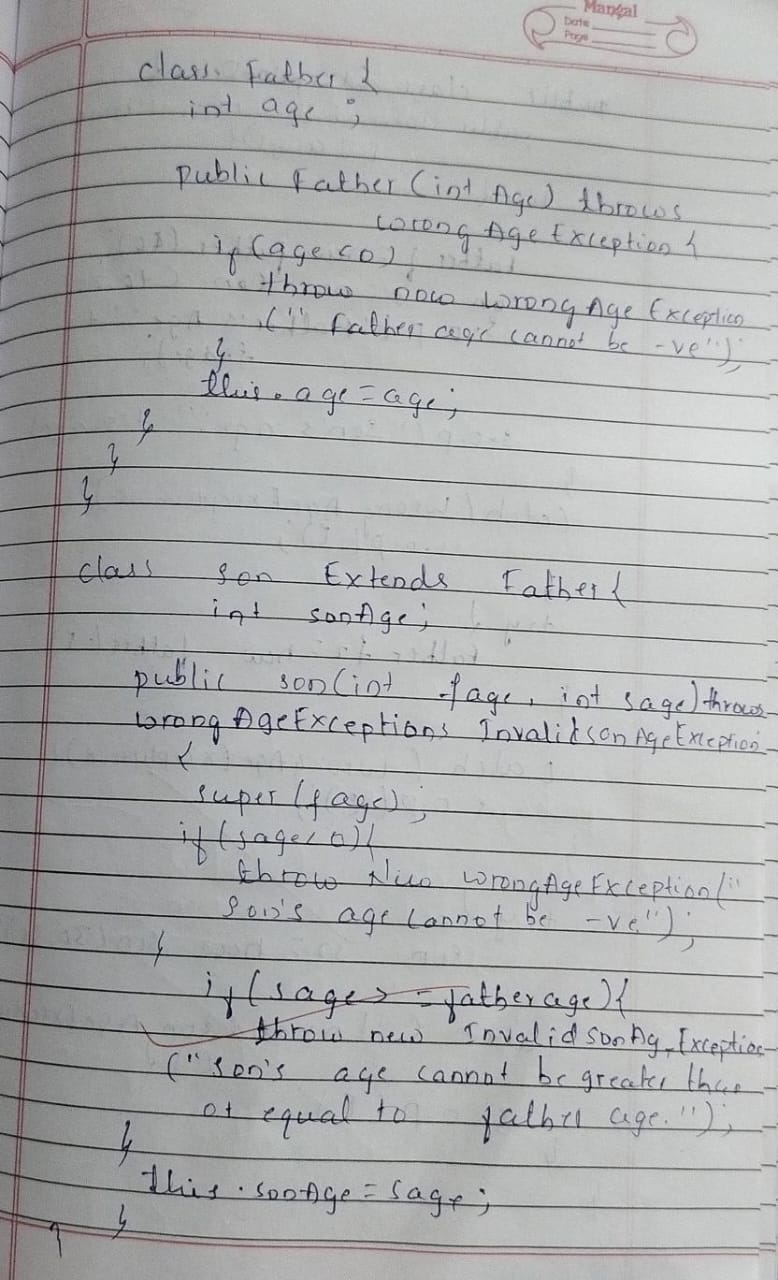 Mangal
Date
Page
class Father {
int age ;
public Father (int Age) throws
Wrong Age Exception {
if (age < 0)
throw new Wrong Age Exception
(" Father age cannot be -ve");
}
this . age = age;
}
}
}
class son Extends Father {
int sonAge;
public son (int fage, int sage) throws
Wrong AgeExceptions InvalidsonAgeException
{
super (fage);
if (sage < 0) {
throw New WrongAgeException ("
son's age cannot be -ve");
}
if (sage > = father age) {
throw new Invalid sonAg Exception
(" Son's age cannot be greater than
or equal to father age.");
}
this . sonAge = sage;
}
}